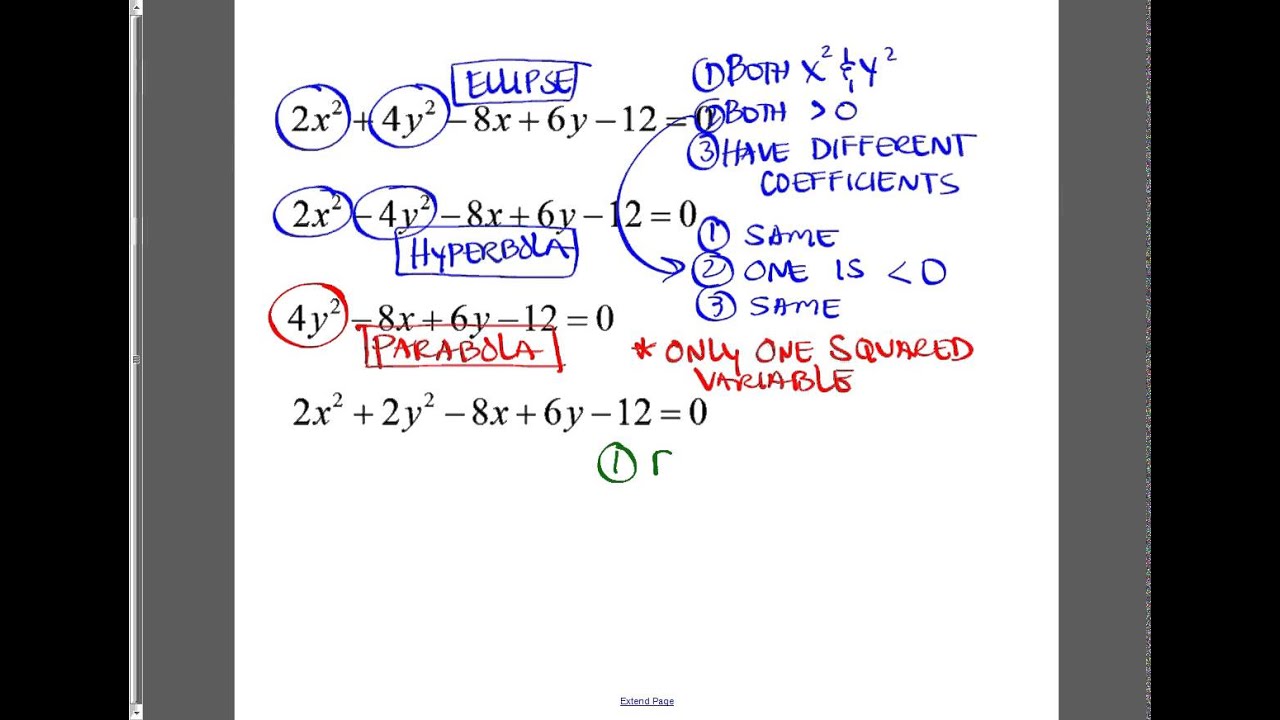 ELLIPSE
2x² + 4y² − 8x + 6y − 12 = 0
① BOTH x² & y²
② BOTH > 0
③ HAVE DIFFERENT
COEFFICIENTS
2x² − 4y² − 8x + 6y − 12 = 0
HYPERBOLA
① SAME
② ONE IS < 0
③ SAME
4y² − 8x + 6y − 12 = 0
PARABOLA
* ONLY ONE SQUARED
VARIABLE
2x² + 2y² − 8x + 6y − 12 = 0
①
Extend Page